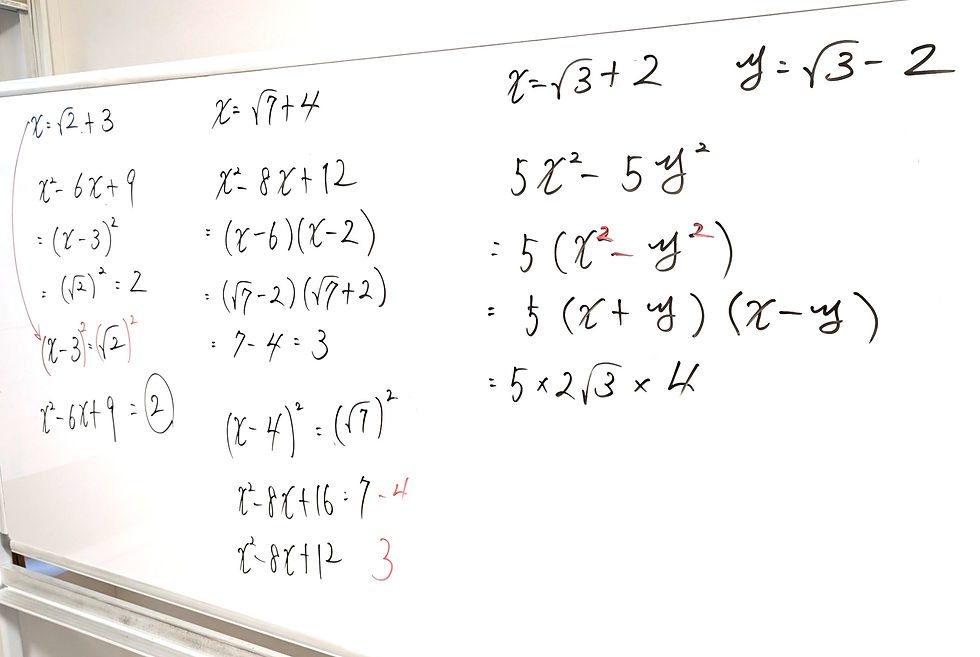 x=√2+3
x²-6x+9
=(x-3)²
=(√2)²=2
(x-3)²=(√2)²
x²-6x+9=2
x=√7+4
x²-8x+12
=(x-6)(x-2)
=(√7-2)(√7+2)
=7-4=3
(x-4)²=(√7)²
x²-8x+16=7-4
x²-8x+12 3
x=√3+2 y=√3-2
5x²-5y²
=5(x²-y²)
=5(x+y)(x-y)
=5×2√3×4